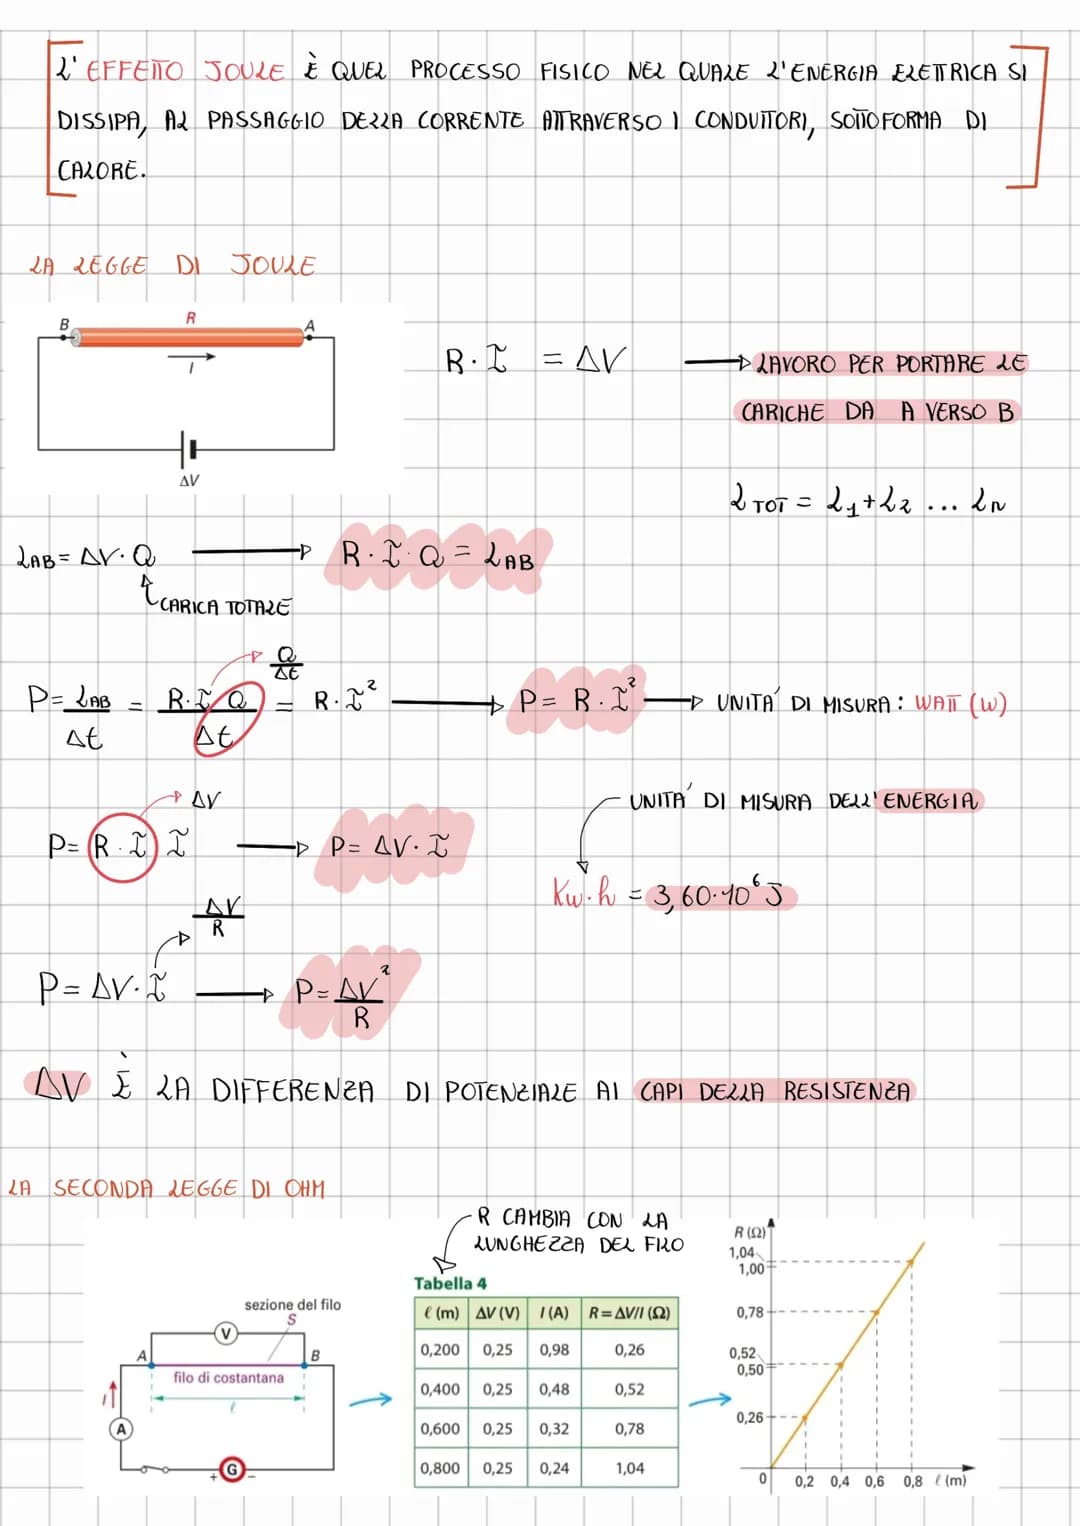 L'EFFETTO JOULE È QUEL PROCESSO FISICO NEL QUALE L'ENERGIA ELETTRICA SI
DISSIPA, AL PASSAGGIO DELLA CORRENTE ATTRAVERSO I CONDUTTORI, SOTTOFORMA DI
CALORE.
LA LEGGE DI JOULE
B R A
I
ΔV
R·I = ΔV → LAVORO PER PORTARE LE
CARICHE DA A VERSO B
L TOT = L1+L2 ... LN
LAB = ΔV·Q → R·I·Q = LAB
CARICA TOTALE
Q/Δt
P = LAB/Δt = R·I Q/Δt = R·I² → P = R·I² → UNITA' DI MISURA: WATT (W)
ΔV
P = (R·I) I → P = ΔV·I
UNITA' DI MISURA DELL'ENERGIA
Kw·h = 3,60·10⁶ J
ΔV/R
P = ΔV·I → P = ΔV²/R
ΔV È LA DIFFERENZA DI POTENZIALE AI CAPI DELLA RESISTENZA
LA SECONDA LEGGE DI OHM
R CAMBIA CON LA
LUNGHEZZA DEL FILO
sezione del filo
S
V
A B
filo di costantana
ℓ
A
+ G −
Tabella 4
ℓ (m) ΔV (V) I (A) R = ΔV/I (Ω)
0,200 0,25 0,98 0,26
0,400 0,25 0,48 0,52
0,600 0,25 0,32 0,78
0,800 0,25 0,24 1,04
R (Ω)
1,04
1,00
0,78
0,52
0,50
0,26
0 0,2 0,4 0,6 0,8 ℓ (m)